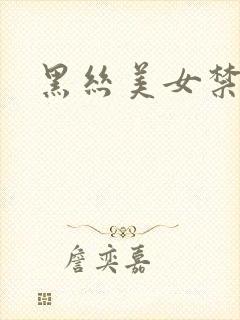 黑丝美女禁
詹奕嘉